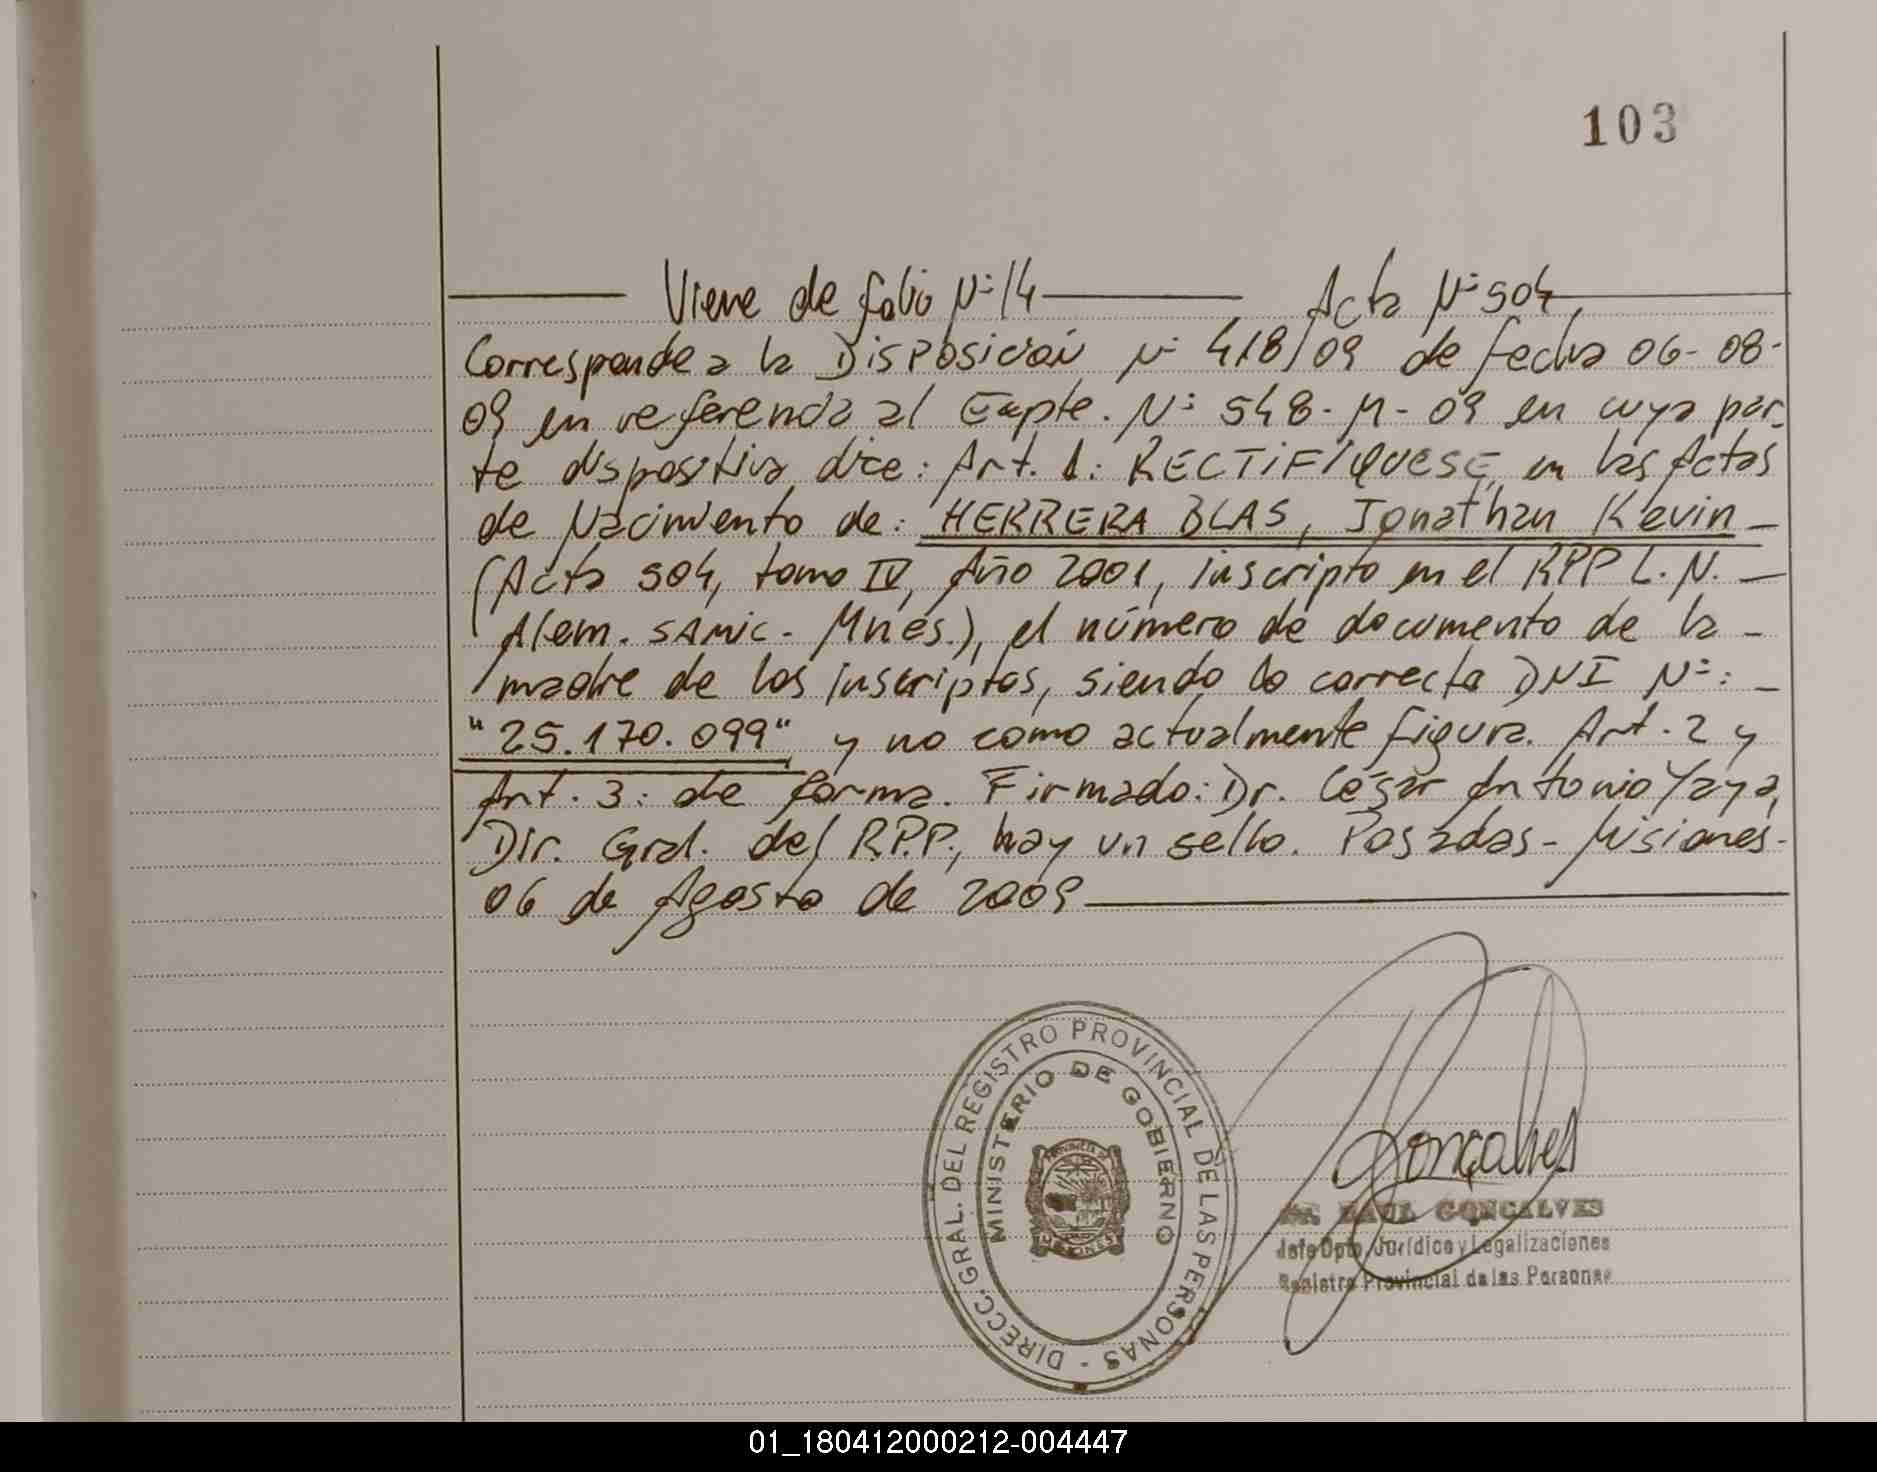 103
Viene de folio Nº 14 Acta Nº 504,
Corresponde a la Disposición Nº 418/09 de fecha 06-08-
09 en referencia al Expte. Nº 548-M-09 en cuya par-
te dispositiva dice: Art. 1: RECTIFÍQUESE, en las Actas
de Nacimiento de: HERRERA BLAS, Jonathan Kevin
(Acta 504, tomo IV, Año 2001, inscripto en el RPP L.N.
Alem. SAMIC - Mnes.), el número de documento de la
madre de los inscriptos, siendo lo correcto DNI Nº:
"25.170.099" y no como actualmente figura. Art. 2 y
Art. 3: de forma. Firmado: Dr. César Antonio Yaya,
Dir. Gral. del R.P.P., hay un sello. Posadas - Misiones -
06 de Agosto de 2009
DIRECC. GRAL. DEL REGISTRO PROVINCIAL DE LAS PERSONAS -
MINISTERIO DE GOBIERNO
PROVINCIA DE
MISIONES
Gonçalves
RAUL GONCALVES
Jefe Dpto. Jurídico y Legalizaciones
Registro Provincial de las Personas
01_180412000212-004447